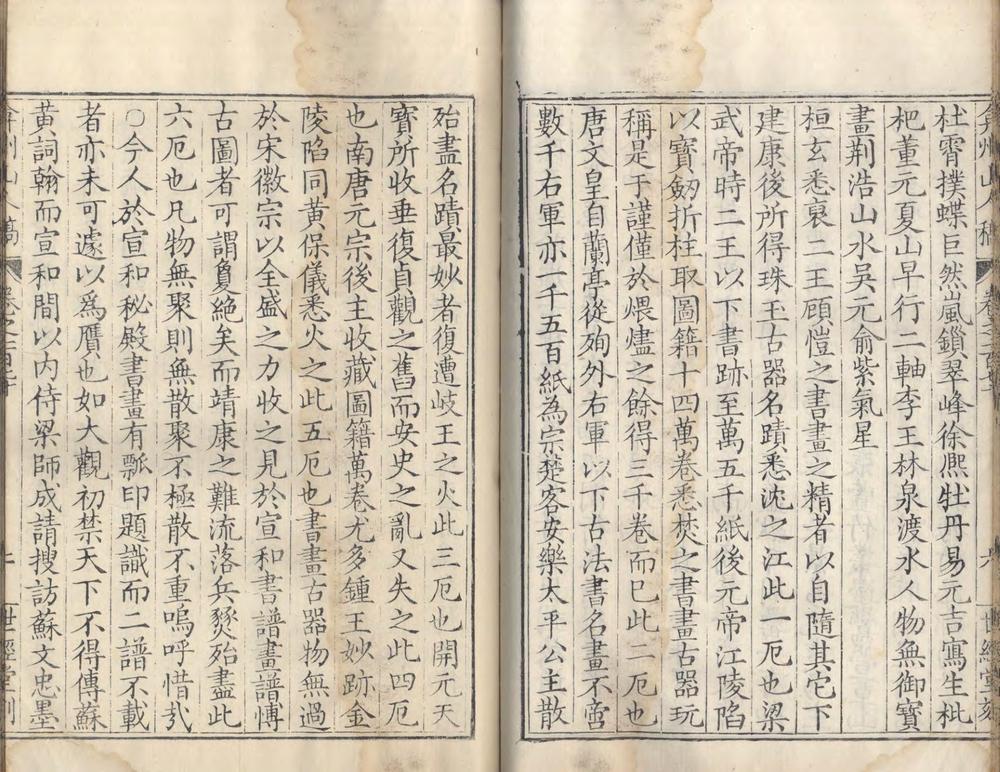 弇州山人稿 卷之一百 六 世經堂刻
杜霄撲蝶巨然嵐鎖翠峰徐熈牡丹易元吉寫生枇
杷董元夏山早行二軸李王林泉渡水人物無御寶
畫荆浩山水吳元俞紫氣星
桓玄悉裒二王顧愷之書畫之精者以自隨其它下
建康後所得珠玉古器名蹟悉沈之江此一厄也梁
武帝時二王以下書跡至萬五千紙後元帝江陵陷
以寶劒折柱取圖籍十四萬卷悉焚之書畫古器玩
稱是于謹僅於煨燼之餘得三千卷而巳此二厄也
唐文皇自蘭亭從殉外右軍以下古法書名畫不啻
數千右軍亦一千五百紙為宗楚客安樂太平公主散
殆盡名蹟最妙者復遭岐王之火此三厄也開元天
寶所收垂復貞觀之舊而安史之亂又失之此四厄
也南唐元宗後主收藏圖籍萬卷尤多鍾王妙跡金
陵陷同黃保儀悉火之此五厄也書畫古器物無過
於宋徽宗以全盛之力收之見於宣和書譜畫譜博
古圖者可謂敻絶矣而靖康之難流落兵燹殆盡此
六厄也凡物無聚則無散聚不極散不重嗚呼惜哉
○今人於宣和秘殿書畫有瓢印題識而二譜不載
者亦未可遽以爲贋也如大觀初禁天下不得傳蘇
黃詞翰而宣和間以内侍梁師成請搜訪蘇文忠墨
弇州山人稿 卷之一百 七 世經堂刻